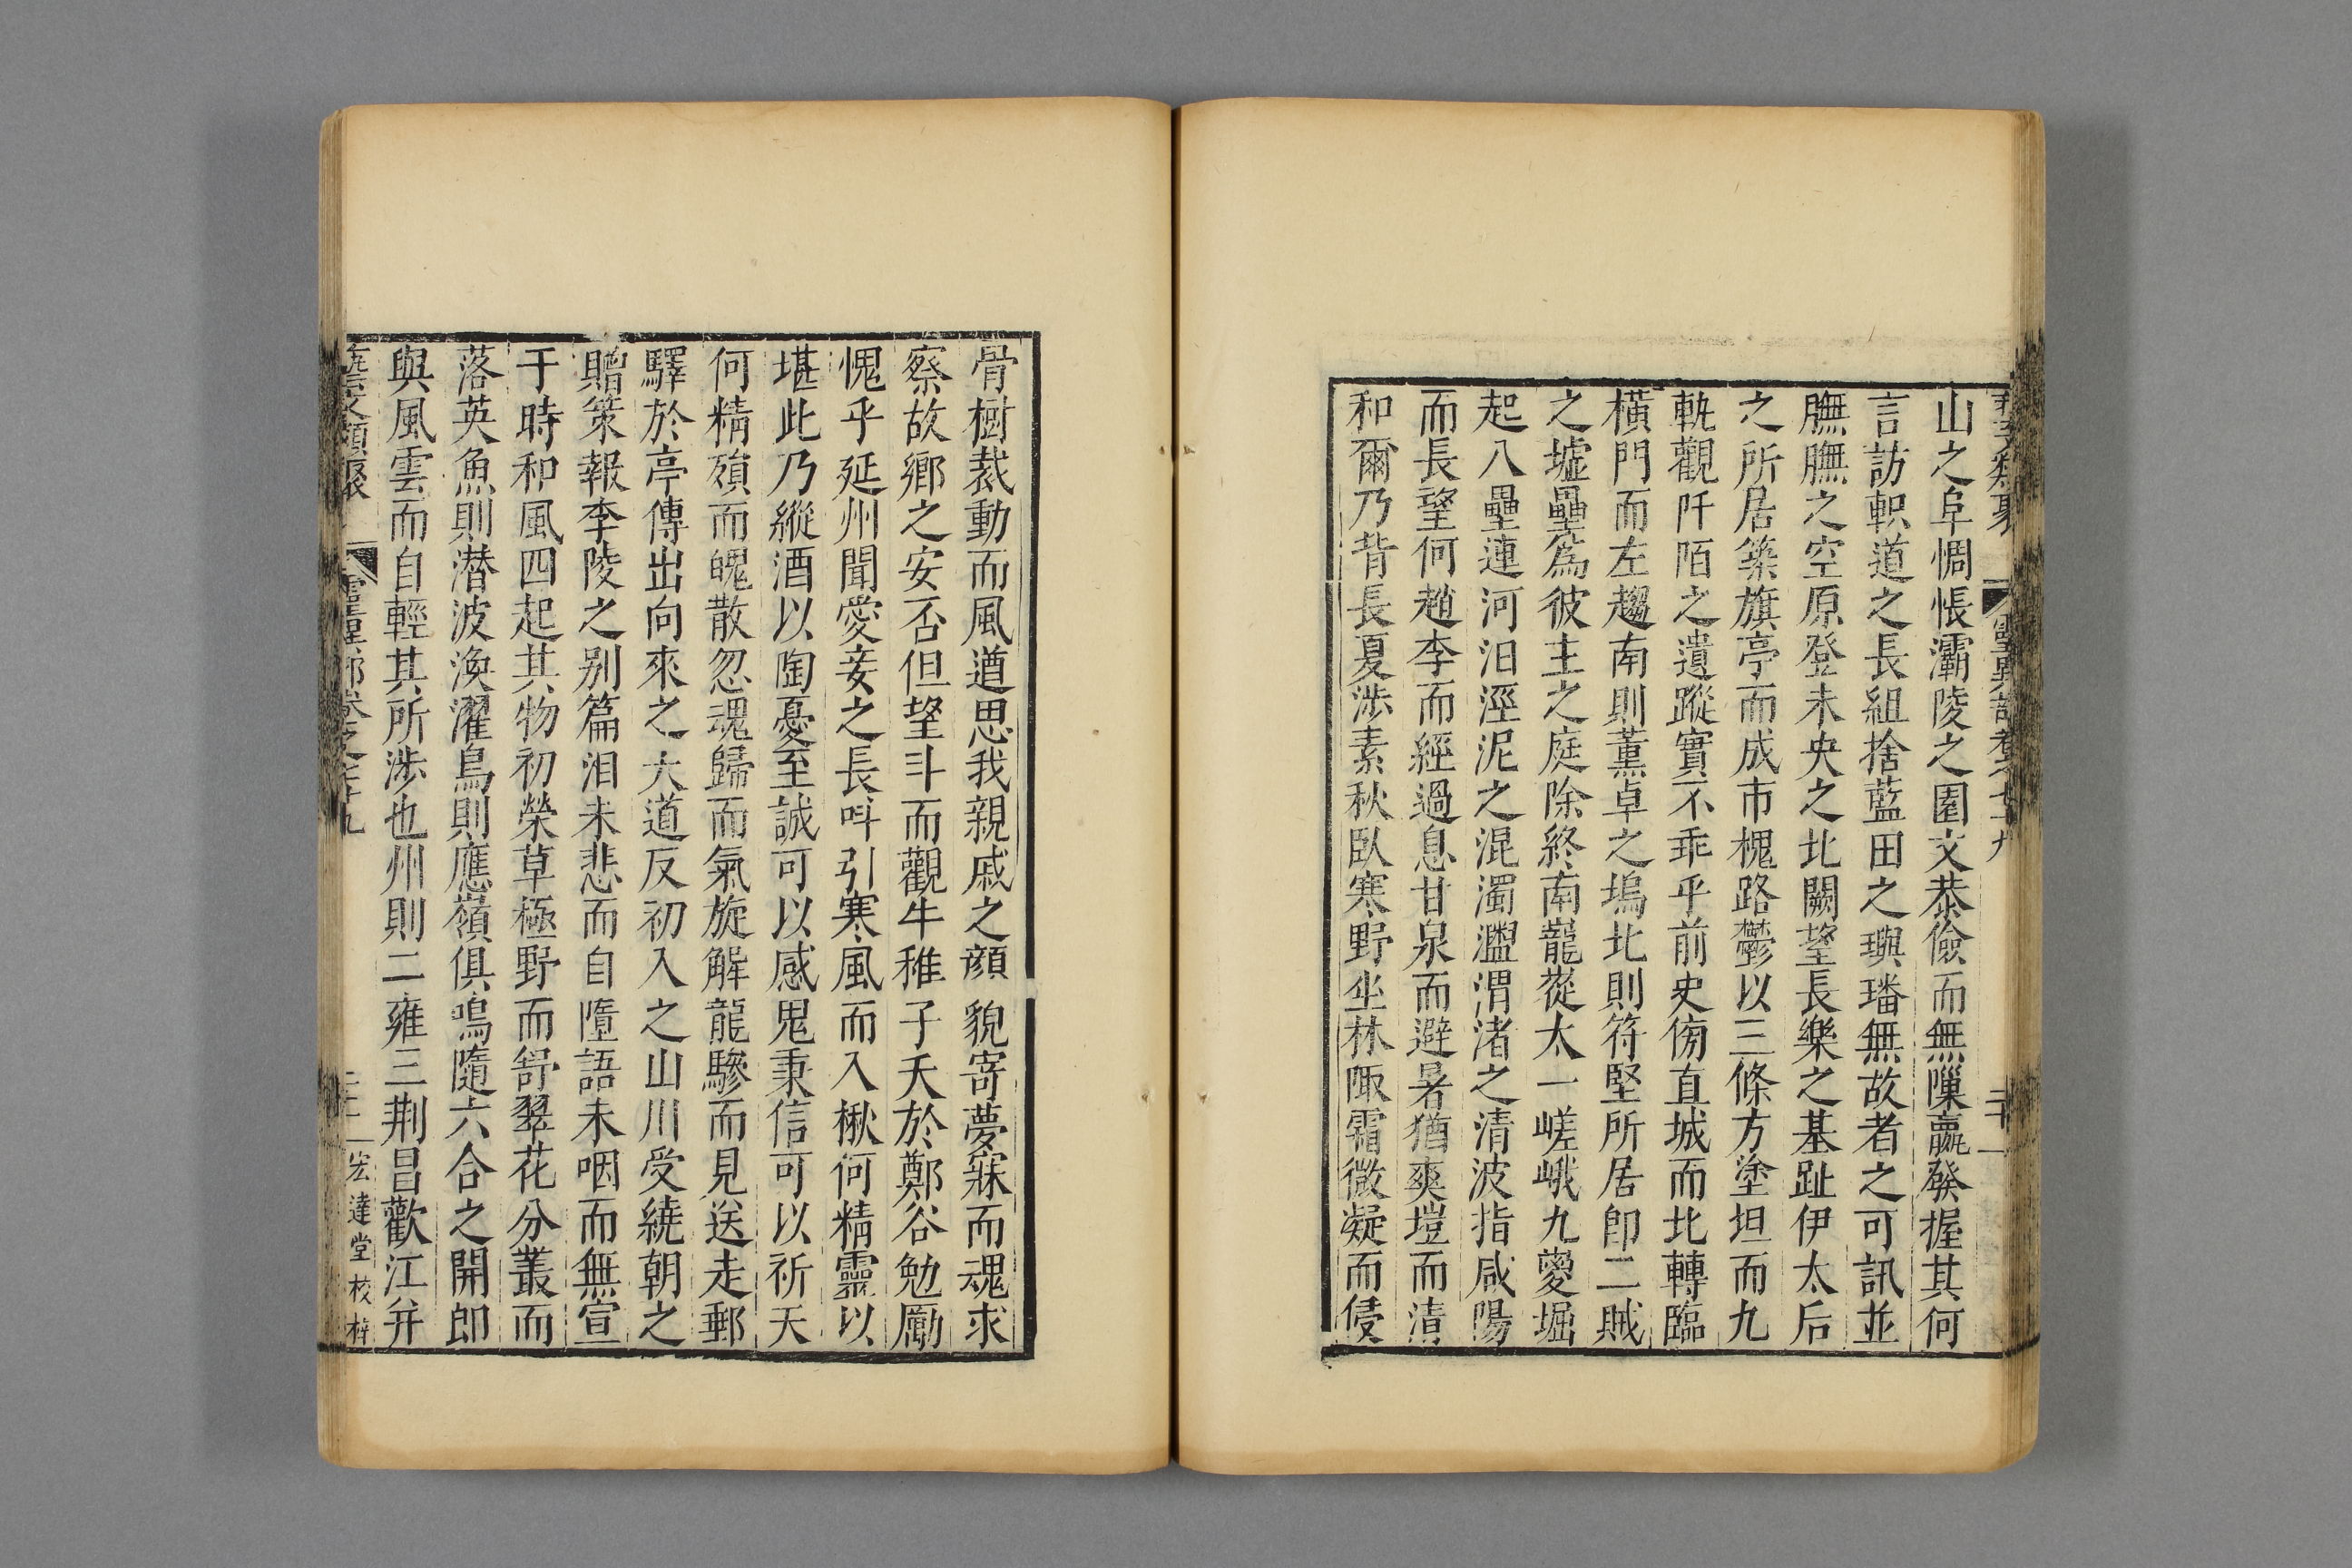 山之阜惆悵灞陵之園文恭儉而無隟嬴發握其何
言訪軹道之長組捨藍田之璵璠無故者之可訊並
膴膴之空原登未央之北闕望長樂之基趾伊太后
之所居築旗亭而成市槐路鬱以三條方塗坦而九
軌觀阡陌之遺蹤實不乖乎前史傍直城而北轉臨
橫門而左趨南則董卓之塢北則符堅所居即二賊
之墟壘為彼主之庭除終南巃嵸太一嵯峨九嵏堀
起八壘連河汨涇泥之混濁灆渭渚之清波指咸陽
而長望何趙李而經過息甘泉而避暑猶爽塏而清
和爾乃背長夏涉素秋臥寒野坐林陬霜微凝而侵
骨樹裁動而風遒思我親戚之顏貌寄夢寐而魂求
察故鄉之安否但望斗而觀牛稚子夭於鄭谷勉勵
愧乎延州聞愛妾之長呌引寒風而入楸何精靈以
堪此乃縱酒以陶憂至誠可以感鬼秉信可以祈天
何精殞而魄散忽魂歸而氣旋解龍驂而見送走郵
驛於亭傳出向來之大道反初入之山川受繞朝之
贈策報李陵之別篇泪未悲而自墮語未咽而無宣
于時和風四起其物初榮草極野而舒翠花分叢而
落英魚則潜波渙濯鳥則應嶺俱鳴隨六合之開即
與風雲而自輕其所涉也州則二雍三荆昌歡江并
宏達堂校梓